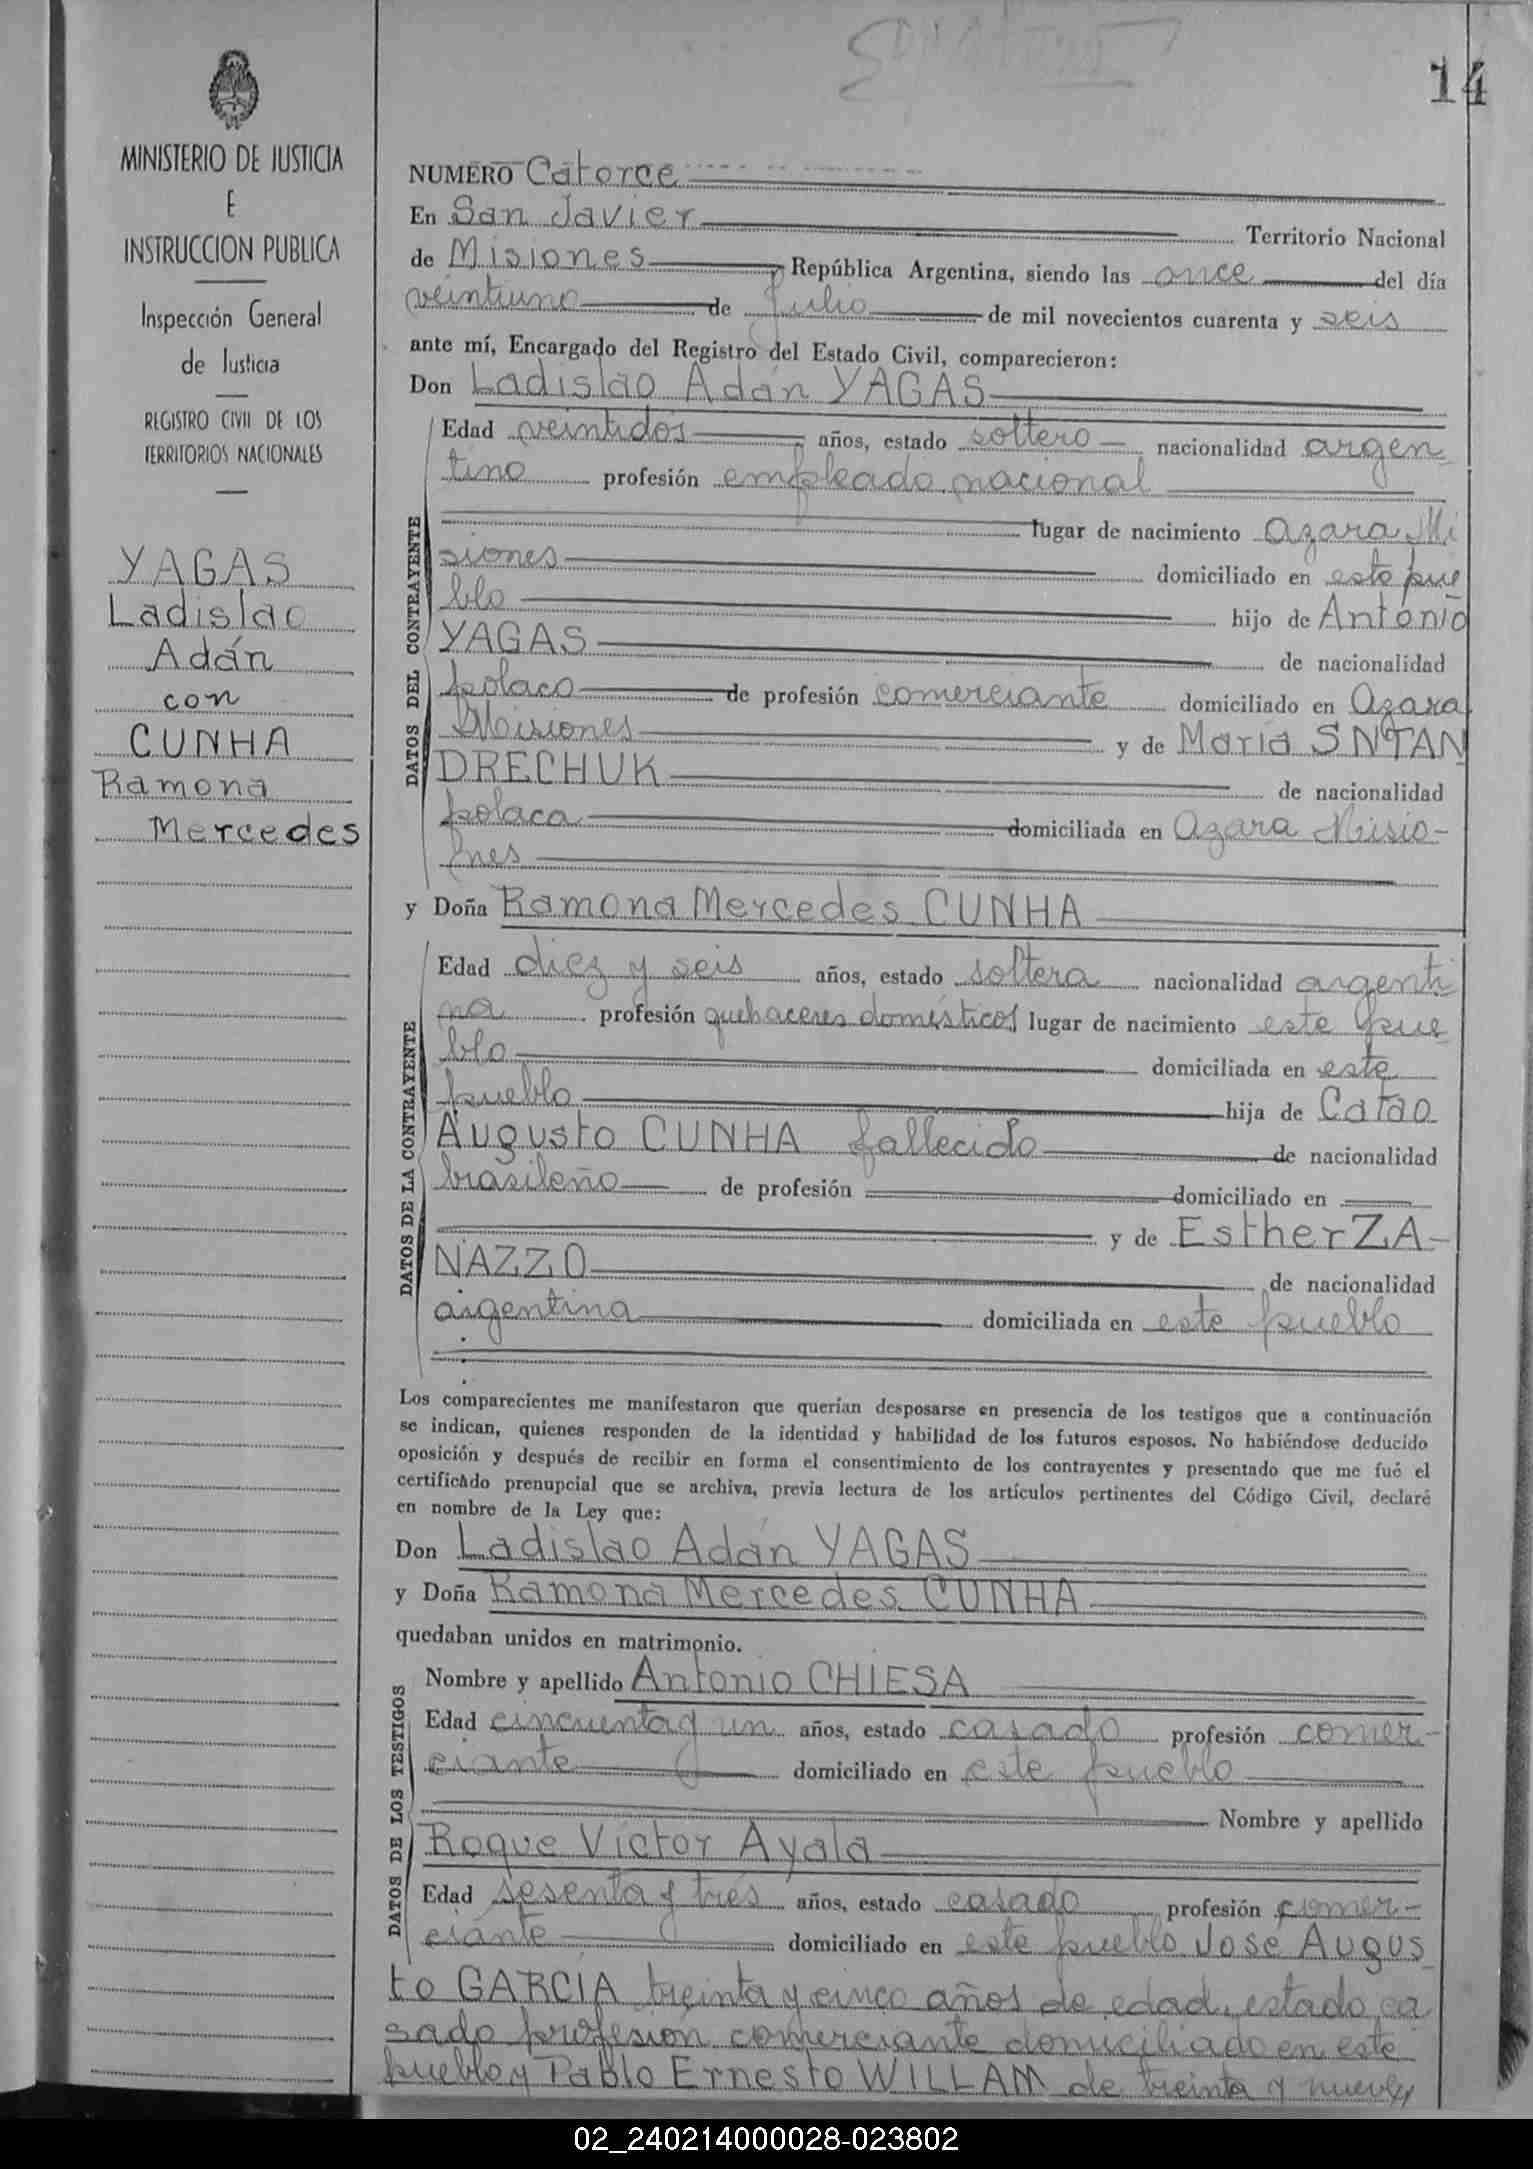 14
MINISTERIO DE JUSTICIA
E
INSTRUCCION PUBLICA
Inspección General
de Justicia
REGISTRO CIVIL DE LOS
TERRITORIOS NACIONALES
YAGAS
Ladislao
Adán
con
CUNHA
Ramona
Mercedes
NUMERO Catorce
En San Javier Territorio Nacional
de Misiones República Argentina, siendo las once del día
veintiuno de julio de mil novecientos cuarenta y seis
ante mí, Encargado del Registro del Estado Civil, comparecieron:
Don Ladislao Adán YAGAS
DATOS DEL CONTRAYENTE
Edad veintidos años, estado soltero nacionalidad argen
tino profesión empleado nacional
lugar de nacimiento Azara Mi
siones domiciliado en este pue
blo hijo de Antonio
YAGAS de nacionalidad
polaco de profesión comerciante domiciliado en Azara
Misiones y de María SNTAN
DRECHUK de nacionalidad
polaca domiciliada en Azara Misio-
nes
y Doña Ramona Mercedes CUNHA
DATOS DE LA CONTRAYENTE
Edad diez y seis años, estado soltera nacionalidad argenti
na profesión quehaceres domésticos lugar de nacimiento este pue
blo domiciliada en este
pueblo hija de Catão
Augusto CUNHA fallecido de nacionalidad
brasileño de profesión domiciliado en
y de Esther ZA-
NAZZO de nacionalidad
argentina domiciliada en este pueblo
Los comparecientes me manifestaron que querían desposarse en presencia de los testigos que a continuación
se indican, quienes responden de la identidad y habilidad de los futuros esposos. No habiéndose deducido
oposición y después de recibir en forma el consentimiento de los contrayentes y presentado que me fué el
certificado prenupcial que se archiva, previa lectura de los artículos pertinentes del Código Civil, declaré
en nombre de la Ley que:
Don Ladislao Adán YAGAS
y Doña Ramona Mercedes CUNHA
quedaban unidos en matrimonio.
DATOS DE LOS TESTIGOS
Nombre y apellido Antonio CHIESA
Edad cincuenta y un años, estado casado profesión comer-
ciante domiciliado en este pueblo
Nombre y apellido
Roque Víctor Ayala
Edad sesenta y tres años, estado casado profesión comer-
ciante domiciliado en este pueblo José Augus
to GARCÍA treinta y cinco años de edad, estado ca
sado profesión comerciante domiciliado en este
pueblo y Pablo Ernesto WILLAM de treinta y nueve
02_240214000028-023802